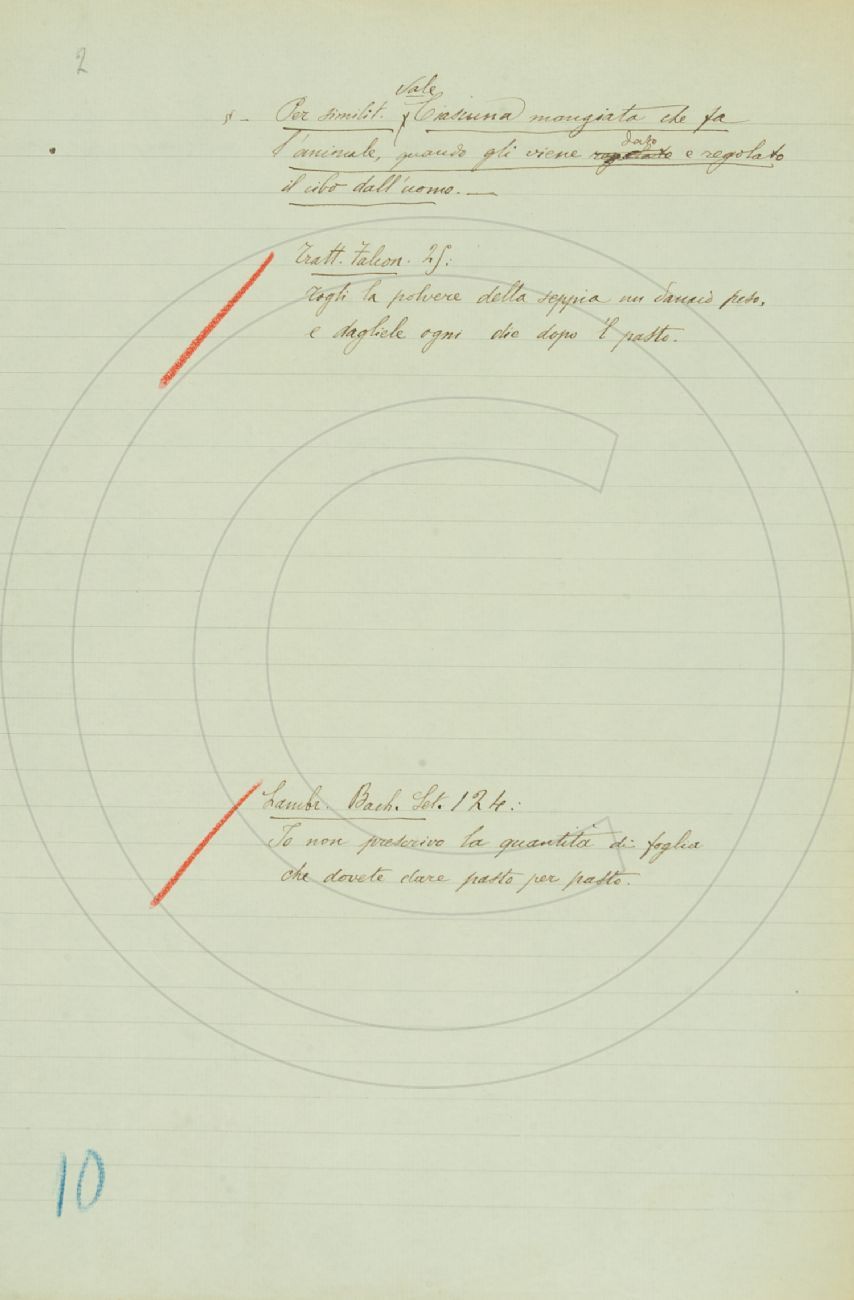 2
§ - Per similit. Vale Ciascuna mangiata che fa
l'animale, quando gli viene dato e regolato
il cibo dall'uomo. —
Tratt. Falcon. 25:
Togli la polvere della seppia un danaio peso,
e dagliele ogni die dopo 'l pasto.
Lambr. Bach. Let. 124:
Io non prescrivo la quantità di foglia
che dovete dare pasto per pasto.
10